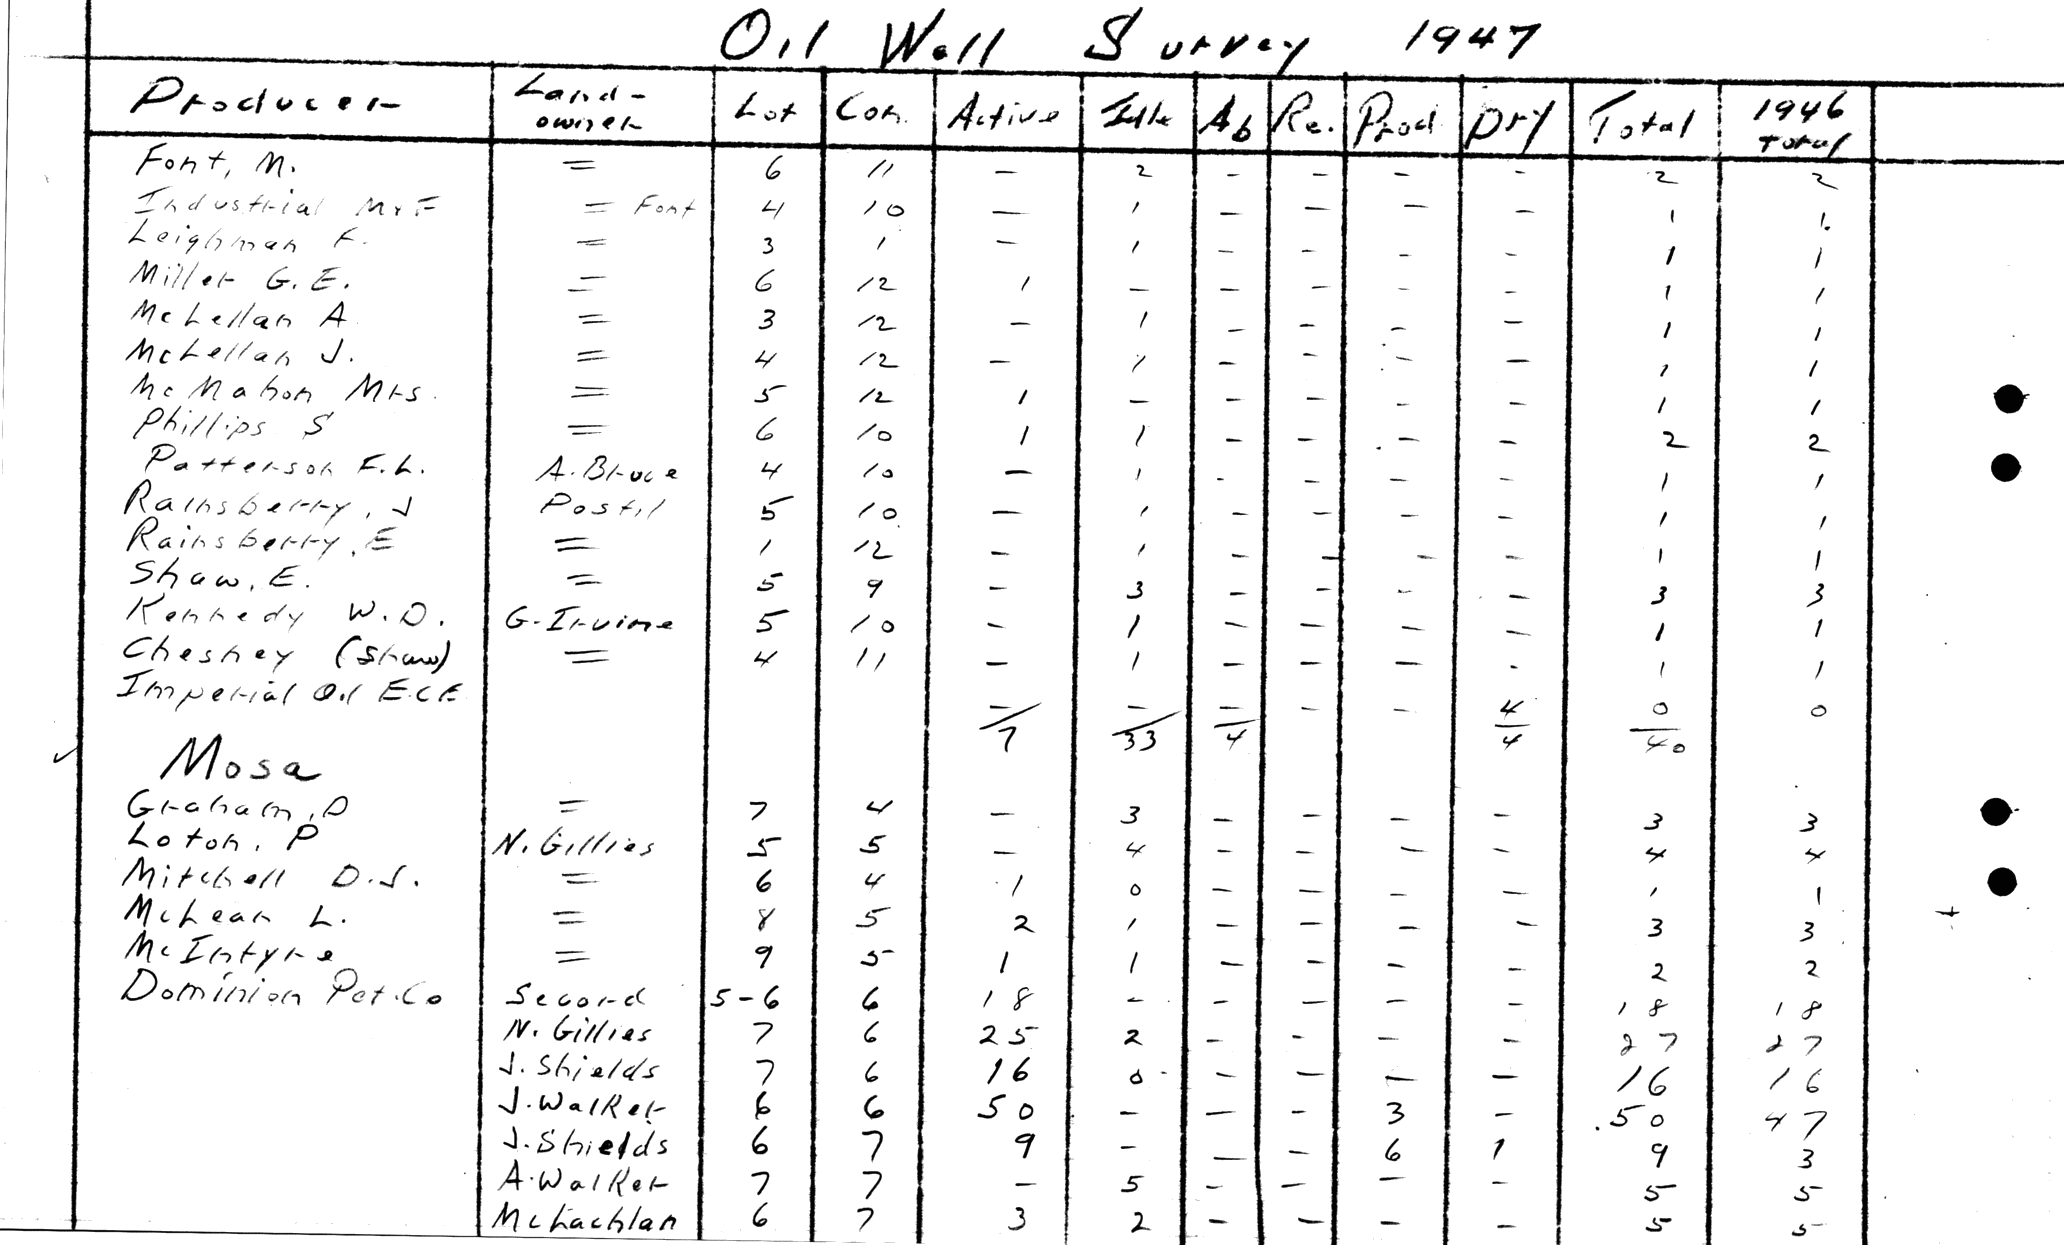 Oil Well Survey 1947
Producer Land-owner Lot Con. Active Idle Ab Re. Prod Dry Total 1946 Total
Font, M. = 6 11 — 2 - - - - 2 2
Industrial M.F = Font 4 10 — 1 - - - - 1 1.
Leighman F. = 3 1 - 1 - - - - 1 1
Miller G. E. = 6 12 1 - - - - - 1 1
McLellan A. = 3 12 - 1 - - - - 1 1
McLellan J. = 4 12 - 1 - - - - 1 1
McMahon Mrs. = 5 12 1 - - - - - 1 1
Phillips S = 6 10 1 1 - - - - 2 2
Patterson F.L. A. Bruce 4 10 - 1 - - - - 1 1
Rainsberry, J Postil 5 10 - 1 - - - - 1 1
Rainsberry, E = 1 12 - 1 - - - - 1 1
Shaw, E. = 5 9 - 3 - - - - 3 3
Kennedy W.D. G. Irvine 5 10 - 1 - - - - 1 1
Chesney (Shaw) = 4 11 - 1 - - - - 1 1
Imperial Oil E.C.E. - - - - - 4 0 0
7 33 4 4 40
Mosa
Graham, D = 7 4 - 3 - - - - 3 3
Loton, P N. Gillies 5 5 - 4 - - - - 4 4
Mitchell D.J. = 6 4 1 0 - - - - 1 1
McLean L. = 8 5 2 1 - - - - 3 3
McIntyre = 9 5 1 1 - - - - 2 2
Dominion Pet. Co Secord 5-6 6 18 - - - - - 18 18
N. Gillies 7 6 25 2 - - - - 27 27
J. Shields 7 6 16 0 - - - - 16 16
J. Walker 6 6 50 - - - 3 - 50 47
J. Shields 6 7 9 - - - 6 1 9 3
A. Walker 7 7 - 5 - - - - 5 5
McLachlan 6 7 3 2 - - - - 5 5